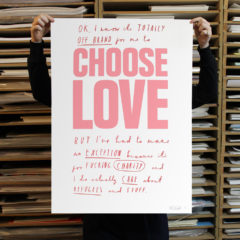 OK, I know it's TOTALLY
OFF BRAND for me to
CHOOSE
LOVE
BUT I've had to make
an EXCEPTION because it's
for FUCKING CHARITY and
I do actually CARE about
REFUGEES and STUFF.